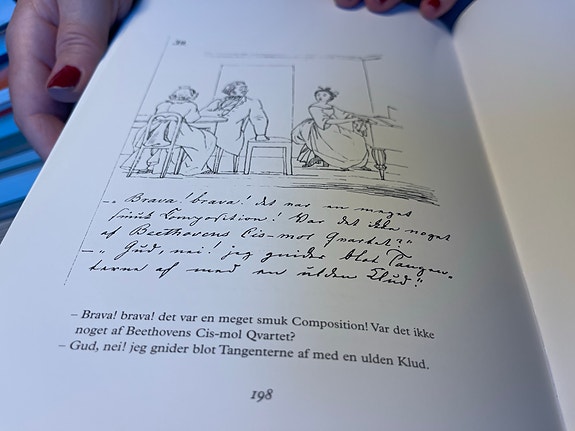 –„ Brava! brava! det var en meget
smuk Composition! Var det ikke noget
af Beethovens Cis-mol Qvartet?"
–„ Gud, nei! jeg gnider blot Tangen-
terne af med en ulden Klud."
– Brava! brava! det var en meget smuk Composition! Var det ikke
noget af Beethovens Cis-mol Qvartet?
– Gud, nei! jeg gnider blot Tangenterne af med en ulden Klud.
198